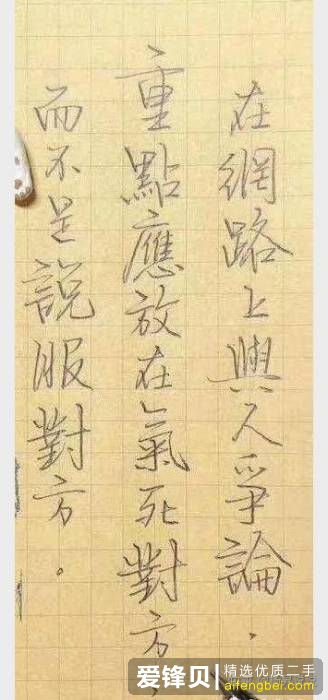 在網路上與人爭論.
重點應放在氣死對方.
而不是說服對方。
爱锋贝 精选优质二手
aifengbei.com